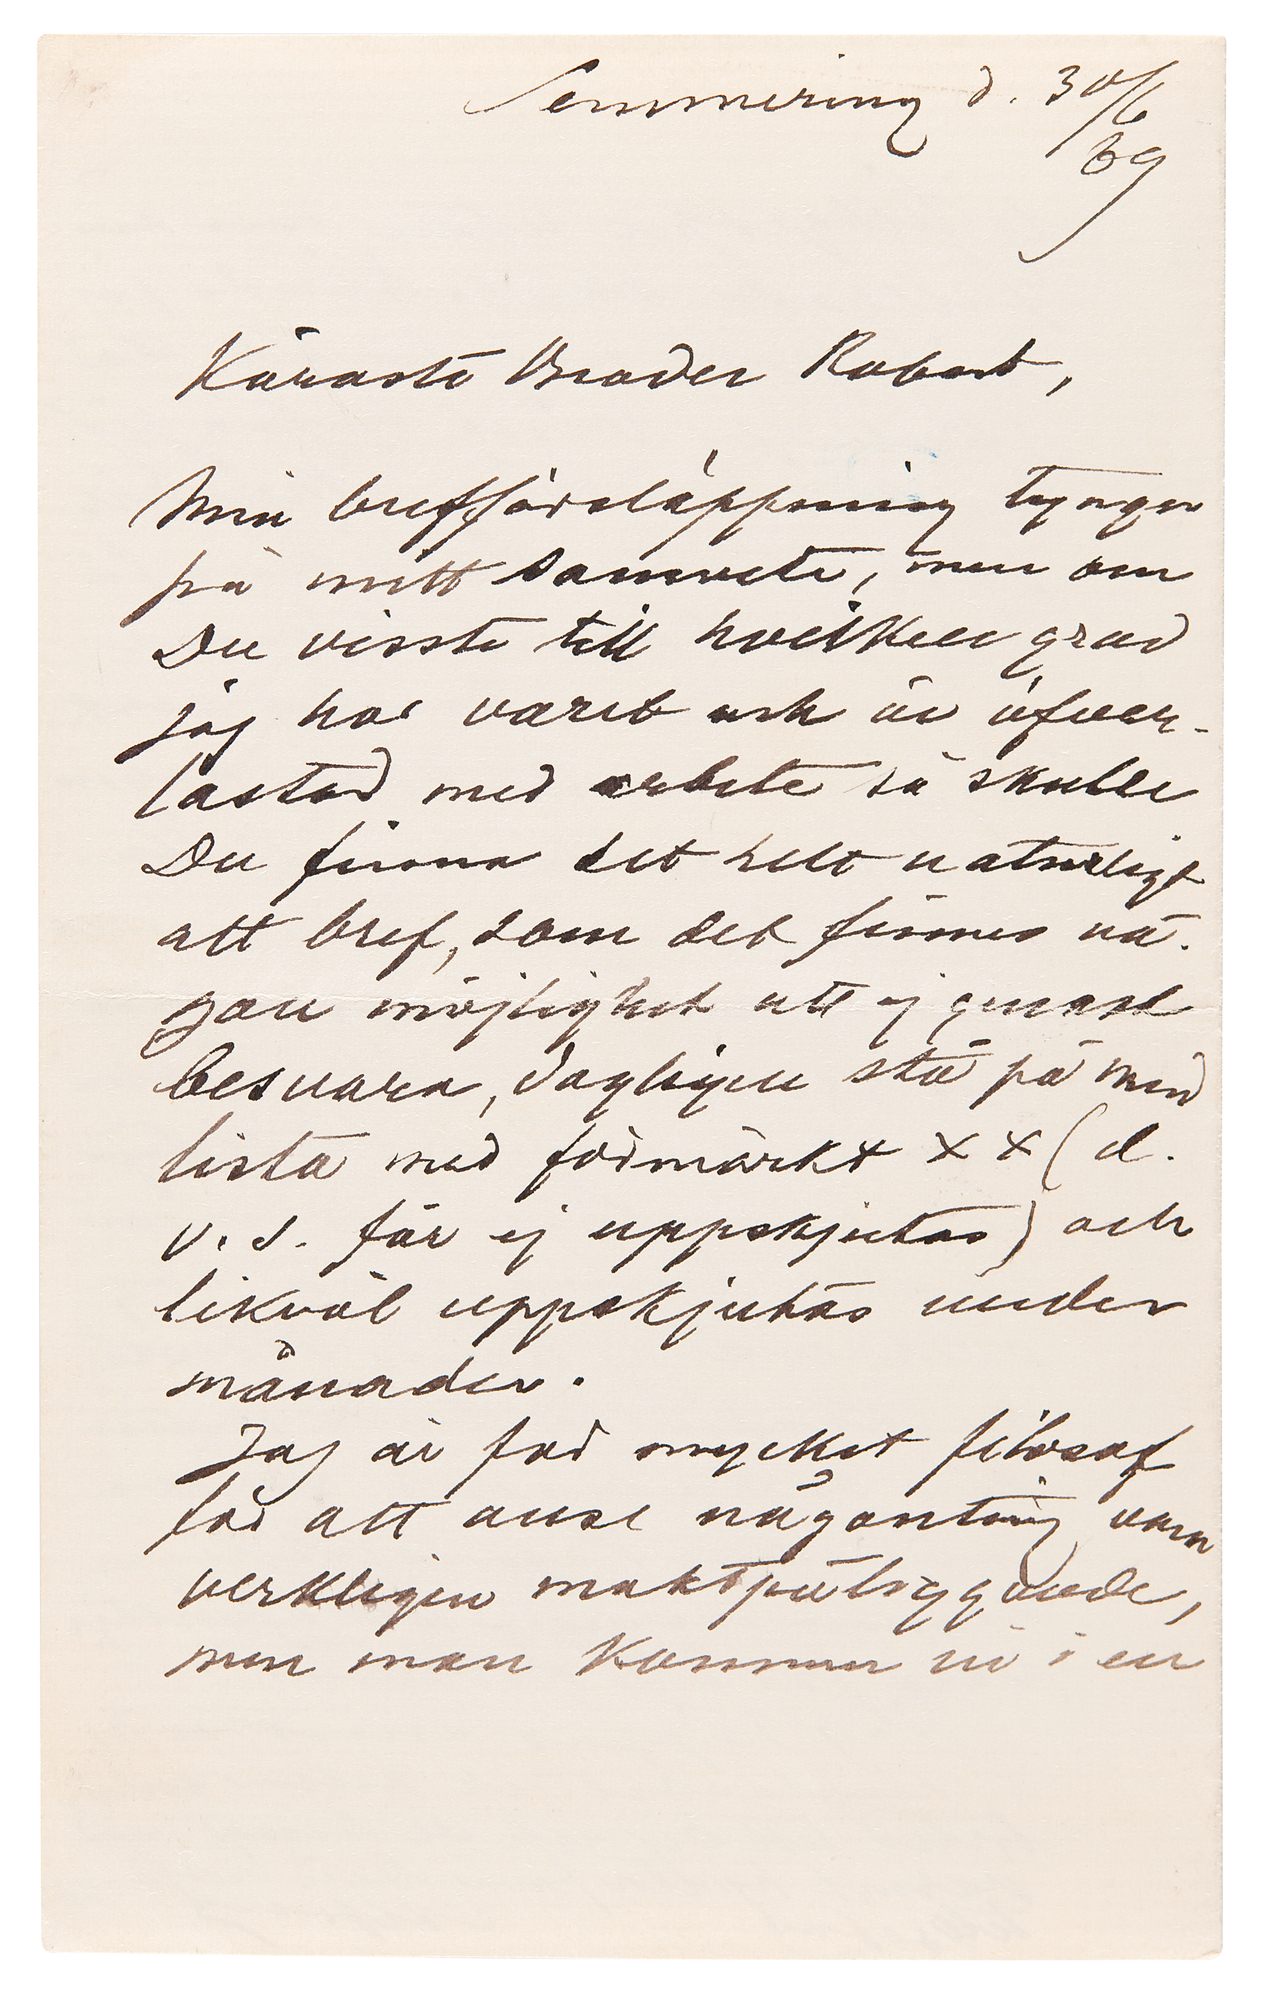 Semmering d. 30/6
89
Käraste Broder Robert,
Min brefförsläppning tynger
på mitt samvete, men om
Du visste till hvilken grad
jag har varit och är öfver-
lastad med arbete så skulle
Du finna det helt naturligt
att bref, som det finnes nå-
gon möjlighet att ej genast
besvara, dagligen stå på min
lista med förmärkt x x (d.
v. s. får ej uppskjutas) och
likväl uppskjutas under
månader.
Jag är för mycket filosof
för att anse någonting vara
verkligen maktpåliggande,
men man kommer in i en